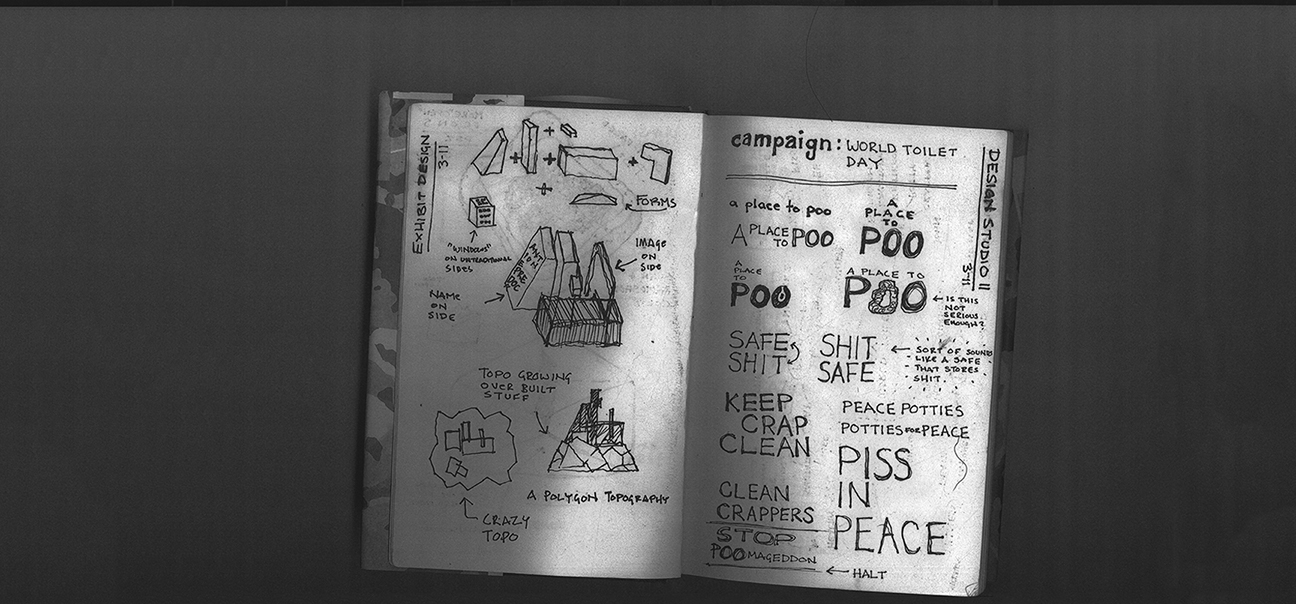 EXHIBIT DESIGN
3-11
FORMS
"WINDOWS"
ON UNTRADITIONAL
SIDES
IMAGE
ON
SIDE
NAME
ON
SIDE
TOPO GROWING
OVER BUILT
STUFF
A POLYGON TOPOGRAPHY
CRAZY
TOPO
campaign: WORLD TOILET
DAY
DESIGN STUDIO II
3-11
a place to poo
A
PLACE
TO
POO
A PLACE
TO POO
A
PLACE
TO
POO
A PLACE TO
POO
IS THIS
NOT
SERIOUS
ENOUGH?
SAFE
SHIT
SHIT
SAFE
SORT OF SOUNDS
LIKE A SAFE
THAT STORES
SHIT.
KEEP
CRAP
CLEAN
PEACE POTTIES
POTTIES FOR PEACE
PISS
IN
PEACE
CLEAN
CRAPPERS
STOP
POOMAGEDDON
HALT